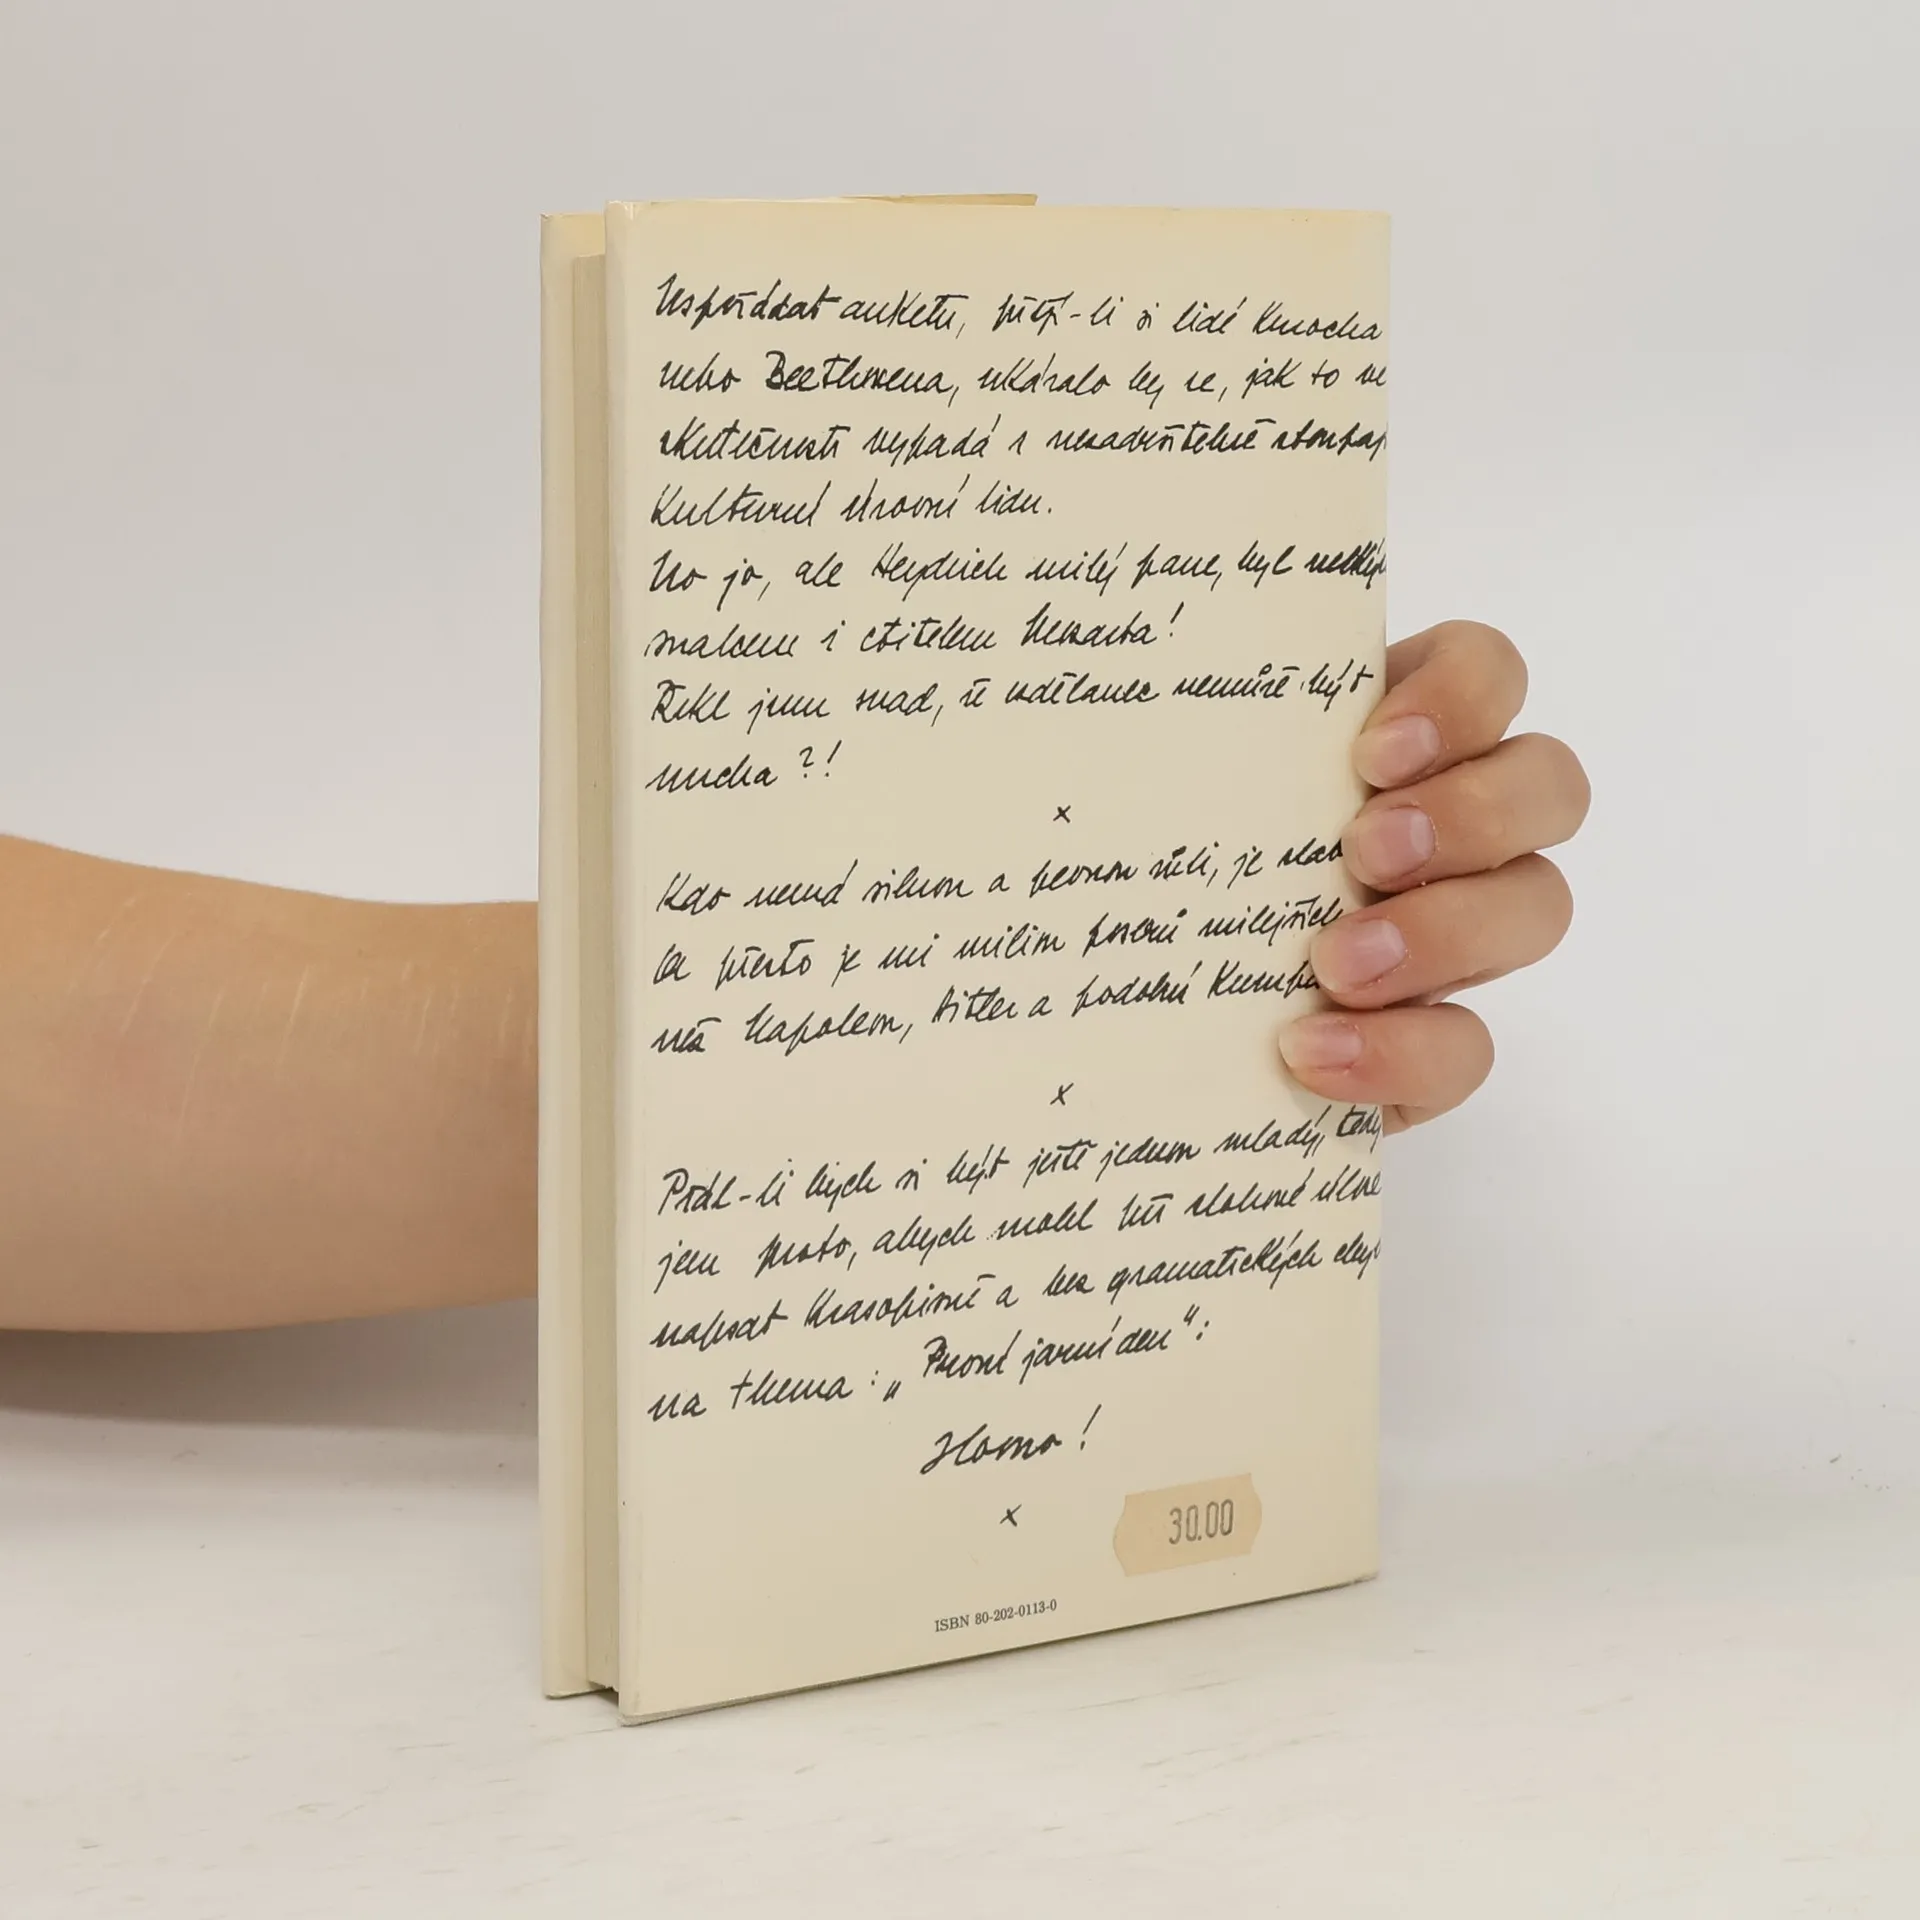 Uspořádat anketu, přejí-li si lidé Kmocha
nebo Beethovena, ukázalo by se, jak to ve
skutečnosti vypadá s nezadržitelně stoupaj
Kulturní úrovní lidu.
No jo, ale Heydrich milý pane, byl velkým
znalcem i ctitelem Mozarta!
Řekl jsem snad, že vzdělanec nemůže být
mrcha?!
x
Kdo nemá silnou a pevnou vůli, je slab
a přesto je mi milion poserů milejších
než Napoleon, Hitler a podobní Kumpá
x
Přál-li bych si být ještě jednou mladý, tedy
jen proto, abych mohl při slohové úloze
napsat Krasopisně a bez gramatických chyb
na thema: „První jarní den":
Hovno!
x
30.00
ISBN 80-202-0113-0